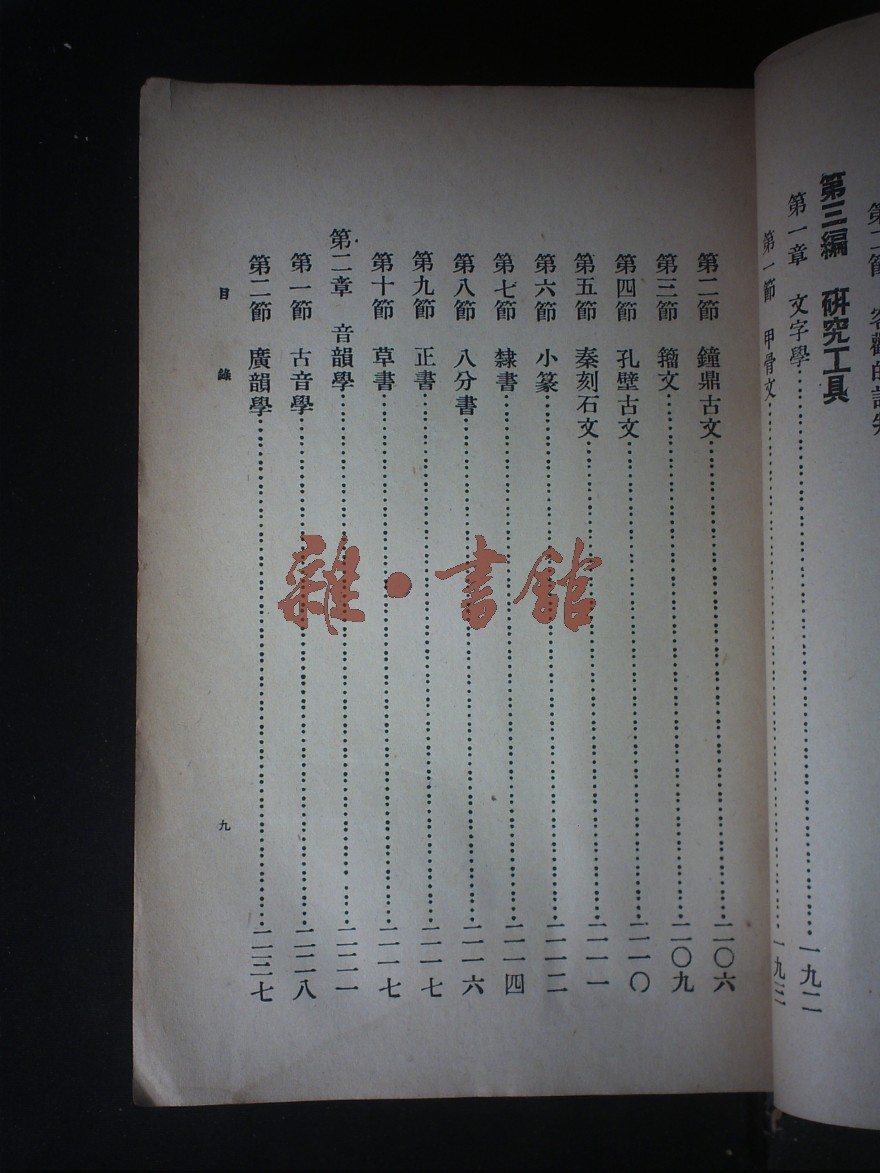 第二節 客觀的
第三編 研究工具
第一章 文字學……一九二
第一節 甲骨文……一九三
第二節 鐘鼎古文……二〇六
第三節 籀文……二〇九
第四節 孔壁古文……二一〇
第五節 秦刻石文……二一一
第六節 小篆……二一二
第七節 隸書……二一四
第八節 八分書……二一六
第九節 正書……二一七
第十節 草書……二一七
第二章 音韻學……二二一
第一節 古音學……二二八
第二節 廣韻學……二三七
目錄
九
雜·書館